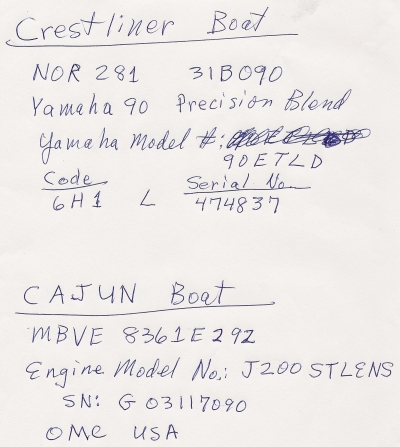 Crestliner Boat
NOR 281 31B090
Yamaha 90 Precision Blend
Yamaha Model #:
90ETLD
Code Serial No.
6H1 L 474837
CAJUN Boat
MBVE 8361E292
Engine Model No.: J200STLENS
SN: G 03117090
OMC USA